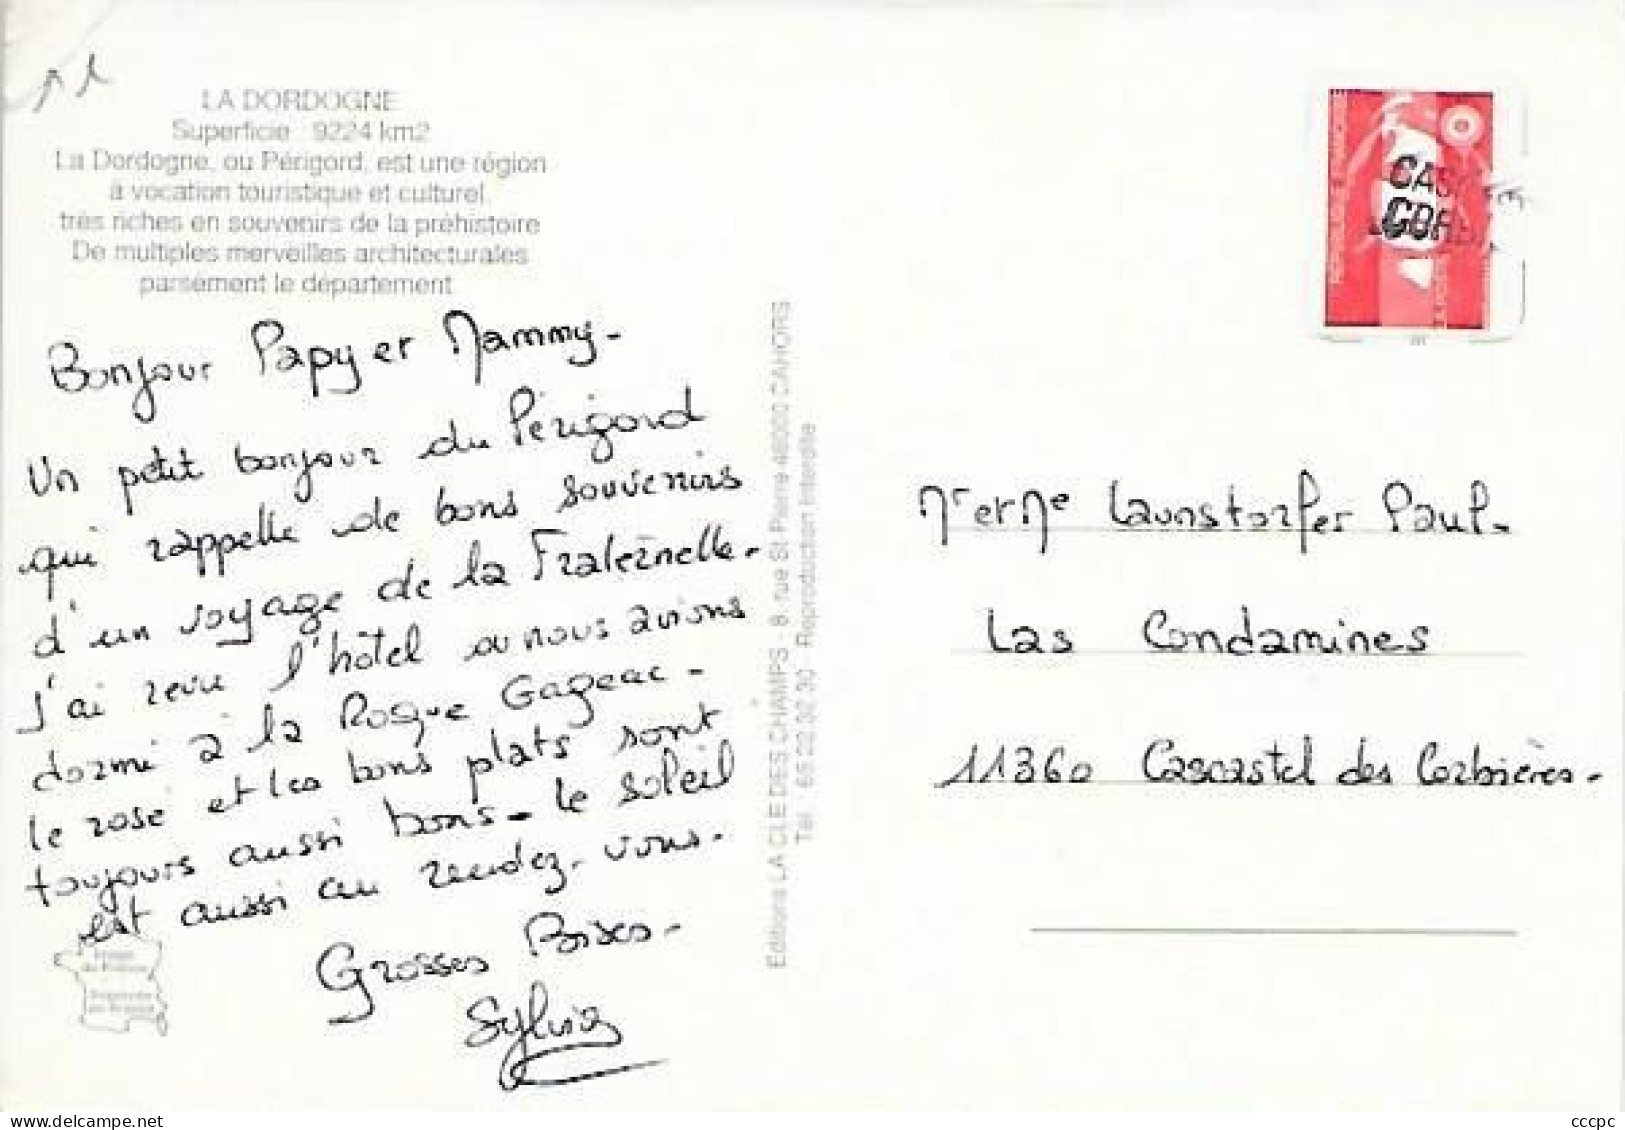 LA DORDOGNE
Superficie : 9224 km2
La Dordogne, ou Périgord, est une région
à vocation touristique et culturel,
très riches en souvenirs de la préhistoire
De multiples merveilles architecturales
parsèment le département
Bonjour Papy et Mammy -
Un petit bonjour du Périgord
qui rappelle de bons souvenirs
d'un voyage de la Fraternelle -
J'ai revu l'hôtel ou nous avions
dormi à la Roque Gageac -
le rosé et les bons plats sont
toujours aussi bons - le soleil
est aussi au rendez-vous -
Grosses Bises -
Sylvie
Editions LA CLE DES CHAMPS - 8, rue St Pierre 46000 CAHORS
Tél. 65.22.32.30 Reproduction Interdite
Mr et Me Launstorfer Paul -
Las Condamines
11360 Cascastel des Corbières -
cccpc